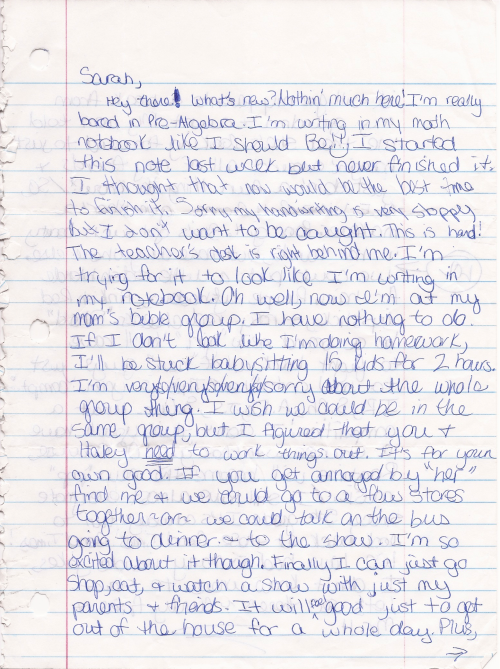 Sarah,
Hey there! what's new? Nothin' much here! I'm really
bored in Pre-Algebra. I'm writing in my math
notebook like I should Be!!, I started
this note last week but never finished it.
I thought that now would be the best time
to finish it. Sorry, my handwriting is very sloppy
but I don't want to be caught. This is hard!
The teacher's desk is right behind me. I'm
trying for it to look like I'm writing in
my notebook. Oh well, now I'm at my
mom's bible group. I have nothing to do.
If I don't look like I'm doing homework,
I'll be stuck babysitting 15 kids for 2 hours.
I'm very/very/very/sorry about the whole
group thing. I wish we could be in the
same group, but I figured that you +
Haley need to work things out. It's for your
own good. If you get annoyed by "her"
find me + we could go to a few stores
together -or- we could talk on the bus
going to dinner + to the show. I'm so
excited about it though. Finally I can just go
shop, eat, + watch a show with just my
parents + friends. It will feel good just to get
out of the house for a whole day. Plus,
→